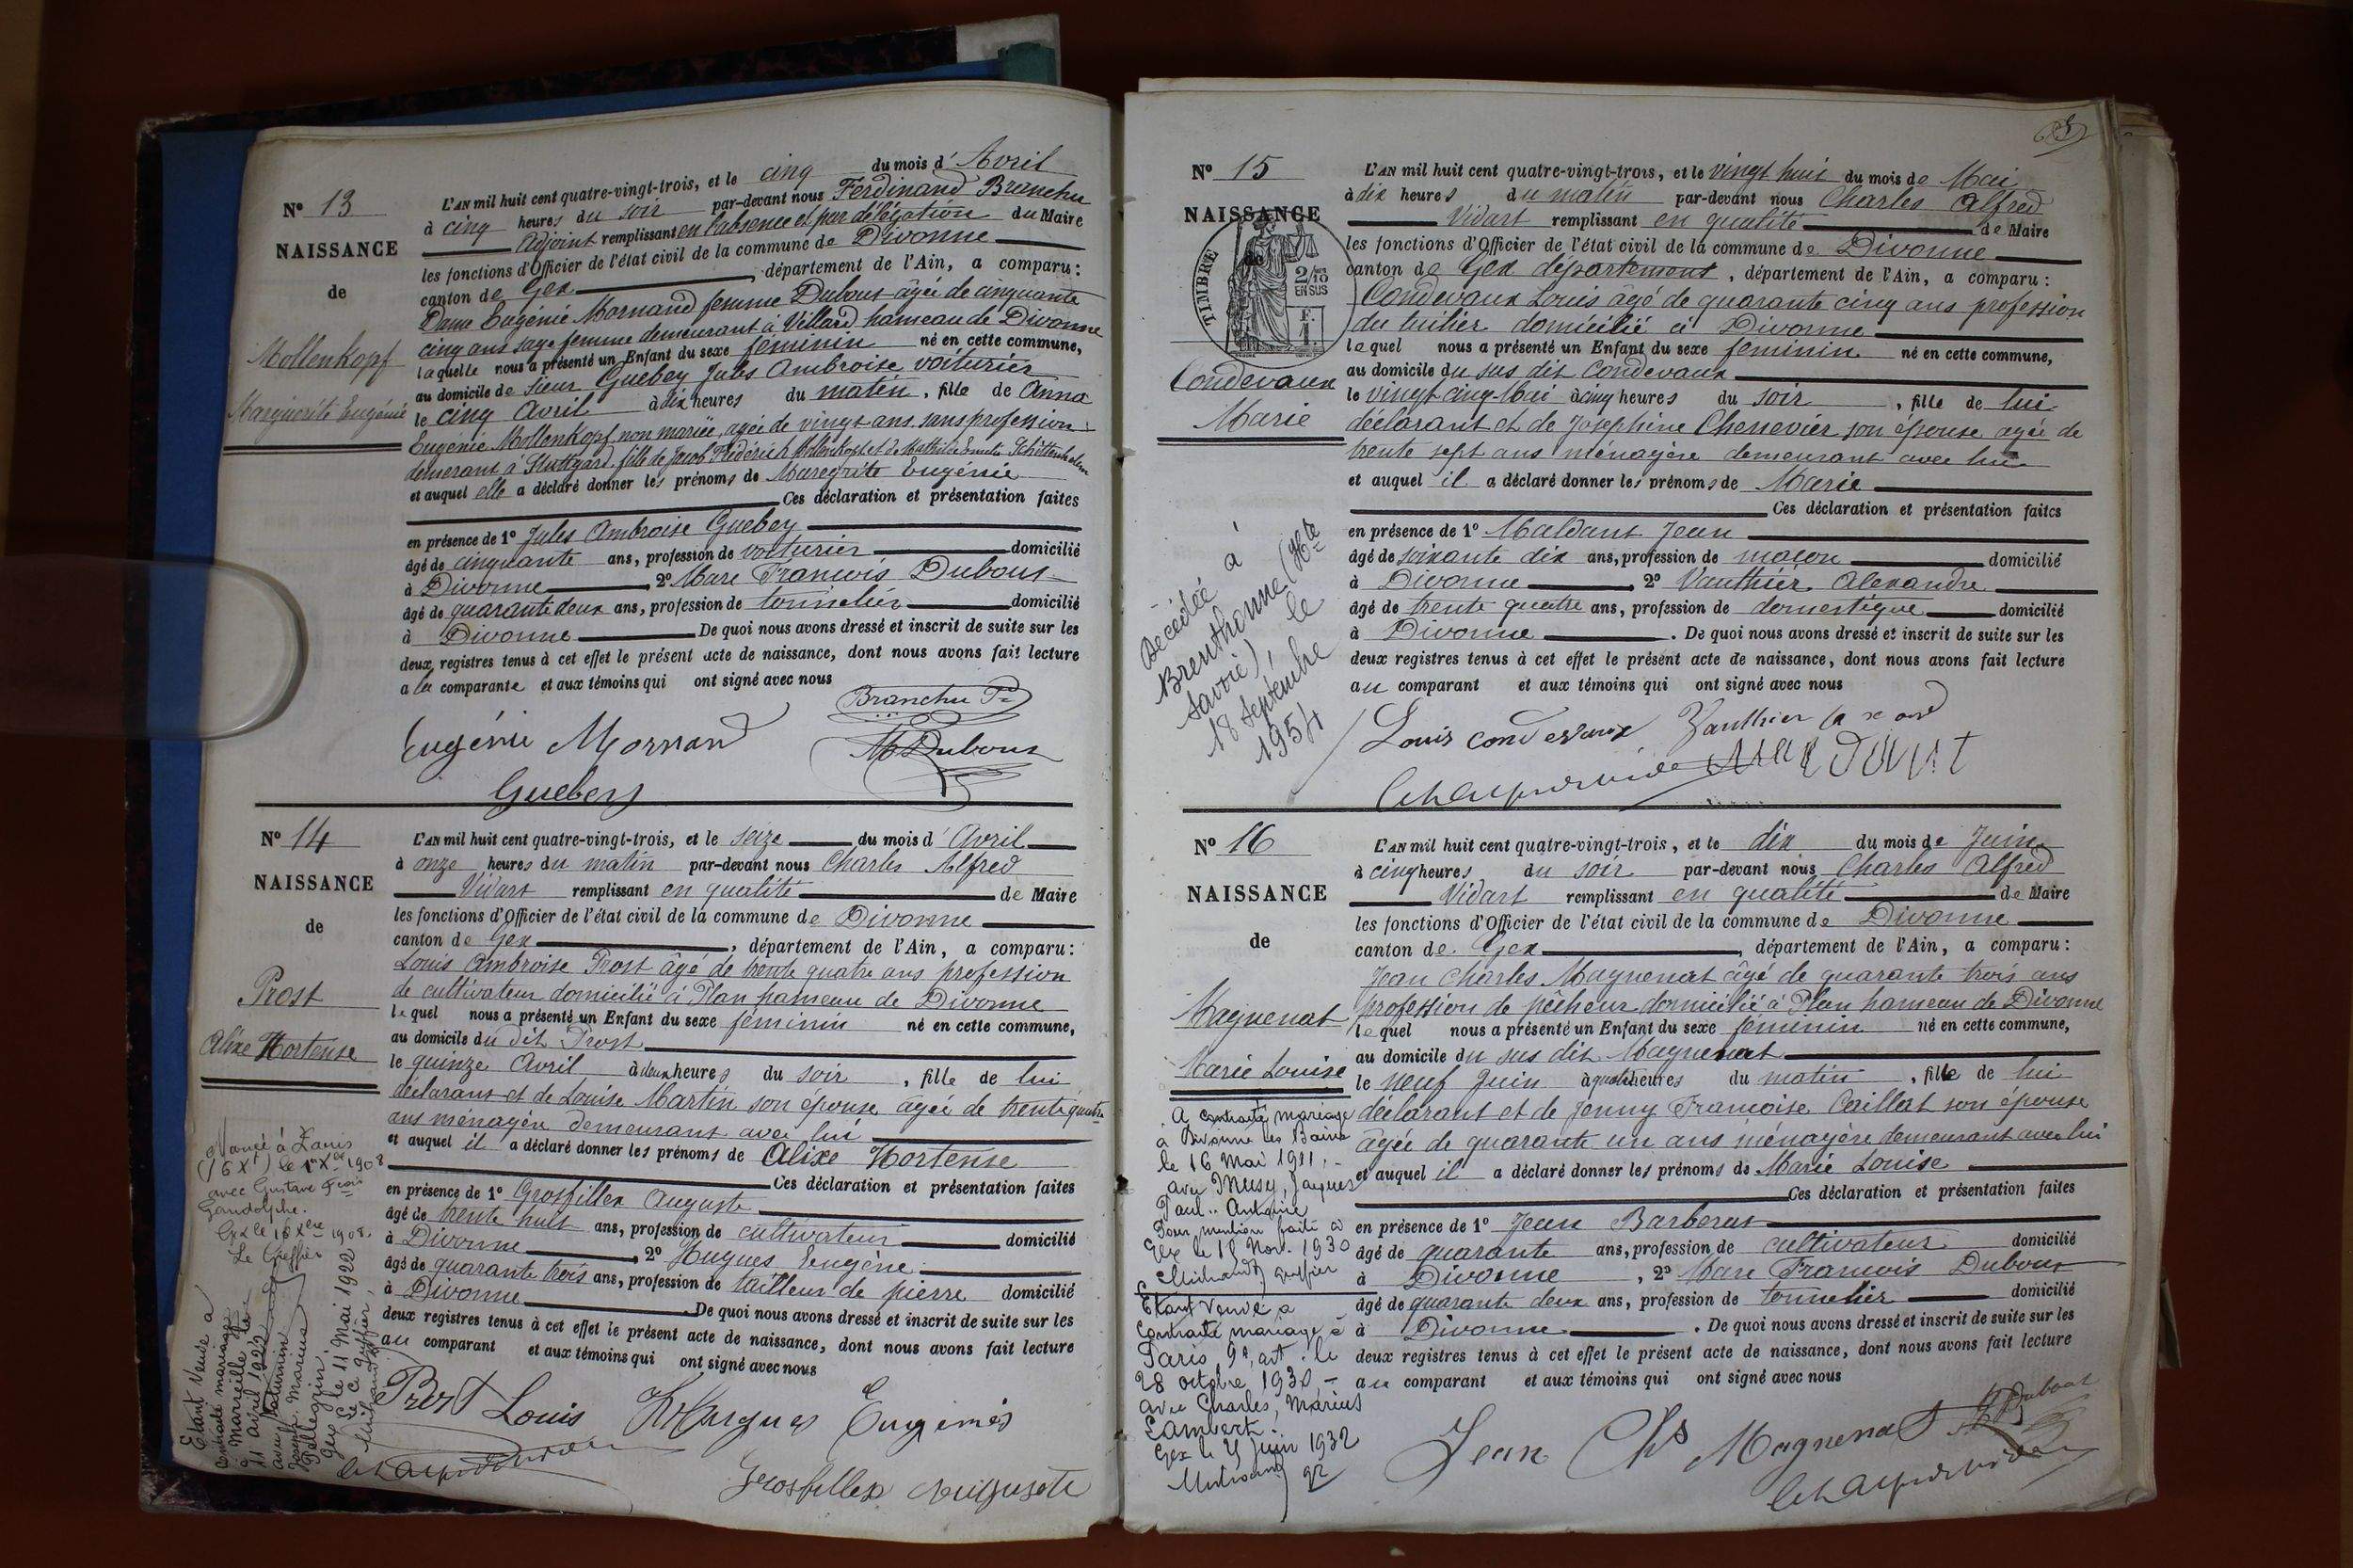 N° 13
NAISSANCE
de
Mollenkopf
Marguerite Eugénie
L'AN mil huit cent quatre-vingt-trois, et le cinq du mois d'Avril
à cinq heures du soir par-devant nous Ferdinand Branchu
Adjoint remplissant en l'absence et par délégation du Maire
les fonctions d'Officier de l'état civil de la commune de Divonne
canton de Gex, département de l'Ain, a comparu:
Dame Eugénie Mornand femme Dubout âgée de cinquante
cinq ans sage femme demeurant à Villard hameau de Divonne
laquelle nous a présenté un Enfant du sexe féminin né en cette commune,
au domicile de Sieur Guebey Jules Ambroise voiturier
le cinq Avril à dix heures du matin, fille de Anna
Eugénie Mollenkopf non mariée, agée de vingt ans sans profession
demerant à Stuttgard, fille de Jacob Frédérich Mollenkopf et de Mathilde
et auquel elle a déclaré donner les prénoms de Maregrite Eugénie
Ces déclaration et présentation faites
en présence de 1° Jules Ambroise Guebey
âgé de cinquante ans, profession de voiturier domicilié
à Divonne 2° Marc François Dubout
âgé de quarante deux ans, profession de tonnelier domicilié
à Divonne De quoi nous avons dressé et inscrit de suite sur les
deux registres tenus à cet effet le présent acte de naissance, dont nous avons fait lecture
a la comparante et aux témoins qui ont signé avec nous
Branchu Fd
Eugénie Mornand
Dubout
Guebey
N° 14
NAISSANCE
de
Prost
Alixe Hortense
L'AN mil huit cent quatre-vingt-trois, et le seize du mois d'Avril
à onze heures du matin par-devant nous Charles Alfred
Vidart remplissant en qualité de Maire
les fonctions d'Officier de l'état civil de la commune de Divonne
canton de Gex, département de l'Ain, a comparu:
Louis Ambroise Prost âgé de trente quatre ans profession
de cultivateur domicilié à Plan hameau de Divonne
lequel nous a présenté un Enfant du sexe féminin né en cette commune,
au domicile du dit Prost
le quinze Avril à deux heures du soir, fille de lui
déclarant et de Louise Martin son épouse agée de trente quatre
ans ménagère demeurant avec lui
et auquel il a déclaré donner les prénoms de Alixe Hortense
Ces déclaration et présentation faites
en présence de 1° Grosfillex Auguste
âgé de trente huit ans, profession de cultivateur domicilié
à Divonne 2° Hugues Eugène
âgé de quarante trois ans, profession de tailleur de pierre domicilié
à Divonne De quoi nous avons dressé et inscrit de suite sur les
deux registres tenus à cet effet le présent acte de naissance, dont nous avons fait lecture
au comparant et aux témoins qui ont signé avec nous
Mariée à Paris
(16 Xt) le 1er Xbre 1908
avec Gustave Fçois
Gandolphe.
Gex le 16 Xbre 1908.
Le Greffier
Etant Veuve a
contracté mariage
à Marseille le
11 avril 1922
avec Saturnin
Joseph Marius
Pellegrin
Gex le 11 Mai 1922
Le Greffier,
Michaud
Prost Louis Hugues Eugène
Grosfillex Auguste
N° 15
NAISSANCE
de
TIMBRE
2/10
EN SUS
Condevaux
Marie
L'AN mil huit cent quatre-vingt-trois, et le vingt huit du mois de Mai
à dix heures du matin par-devant nous Charles Alfred
Vidart remplissant en qualité de Maire
les fonctions d'Officier de l'état civil de la commune de Divonne
canton de Gex département, département de l'Ain, a comparu:
Condevaux Louis âgé de quarante cinq ans profession
du tuilier domicilié à Divonne
lequel nous a présenté un Enfant du sexe féminin né en cette commune,
au domicile du sus dit Condevaux
le vingt cinq Mai à cinq heures du soir, fille de lui
déclarant et de Josephine Chenevier son épouse agée de
trente sept ans ménagère demeurant avec lui
et auquel il a déclaré donner les prénoms de Marie
Ces déclaration et présentation faites
en présence de 1° Maldant Jean
âgé de soixante dix ans, profession de maçon domicilié
à Divonne 2° Vauthier Alexandre
âgé de trente quatre ans, profession de domestique domicilié
à Divonne. De quoi nous avons dressé et inscrit de suite sur les
deux registres tenus à cet effet le présent acte de naissance, dont nous avons fait lecture
au comparant et aux témoins qui ont signé avec nous
Décédée à
Brenthonne (Hte
Savoie), le
18 Septembre
1954
Louis Condevaux Vauthier
Maldant
N° 16
NAISSANCE
de
Magnenat
Marie Louise
L'AN mil huit cent quatre-vingt-trois, et le dix du mois de Juin
à cinq heures du soir par-devant nous Charles Alfred
Vidart remplissant en qualité de Maire
les fonctions d'Officier de l'état civil de la commune de Divonne
canton de Gex, département de l'Ain, a comparu:
Jean Charles Magnenat âgé de quarante trois ans
profession de pêcheur domicilié à Plan hameau de Divonne
lequel nous a présenté un Enfant du sexe féminin né en cette commune,
au domicile du sus dit Magnenat
le neuf Juin à quatre heures du matin, fille de lui
déclarant et de Jenny Françoise Caillat son épouse
âgée de quarante un ans ménagère demeurant avec lui
et auquel il a déclaré donner les prénoms de Marie Louise
Ces déclaration et présentation faites
en présence de 1° Jean Barberat
âgé de quarante ans, profession de cultivateur domicilié
à Divonne, 2° Marc François Dubout
âgé de quarante deux ans, profession de tonnelier domicilié
à Divonne. De quoi nous avons dressé et inscrit de suite sur les
deux registres tenus à cet effet le présent acte de naissance, dont nous avons fait lecture
au comparant et aux témoins qui ont signé avec nous
A contracté mariage
à Divonne les Bains
le 16 Mai 1911,
avec Musy, Jacques
Paul Antoine
Pour mention faite à
Gex le 18 Nov. 1930
Michaud greffier
Etant Veuve a
contracté mariage à
Paris 9e art. le
28 octobre 1930
avec Charles, Marius
Lambert.
Gex le 21 Juin 1932
Jean Chs Magnenat Dubout